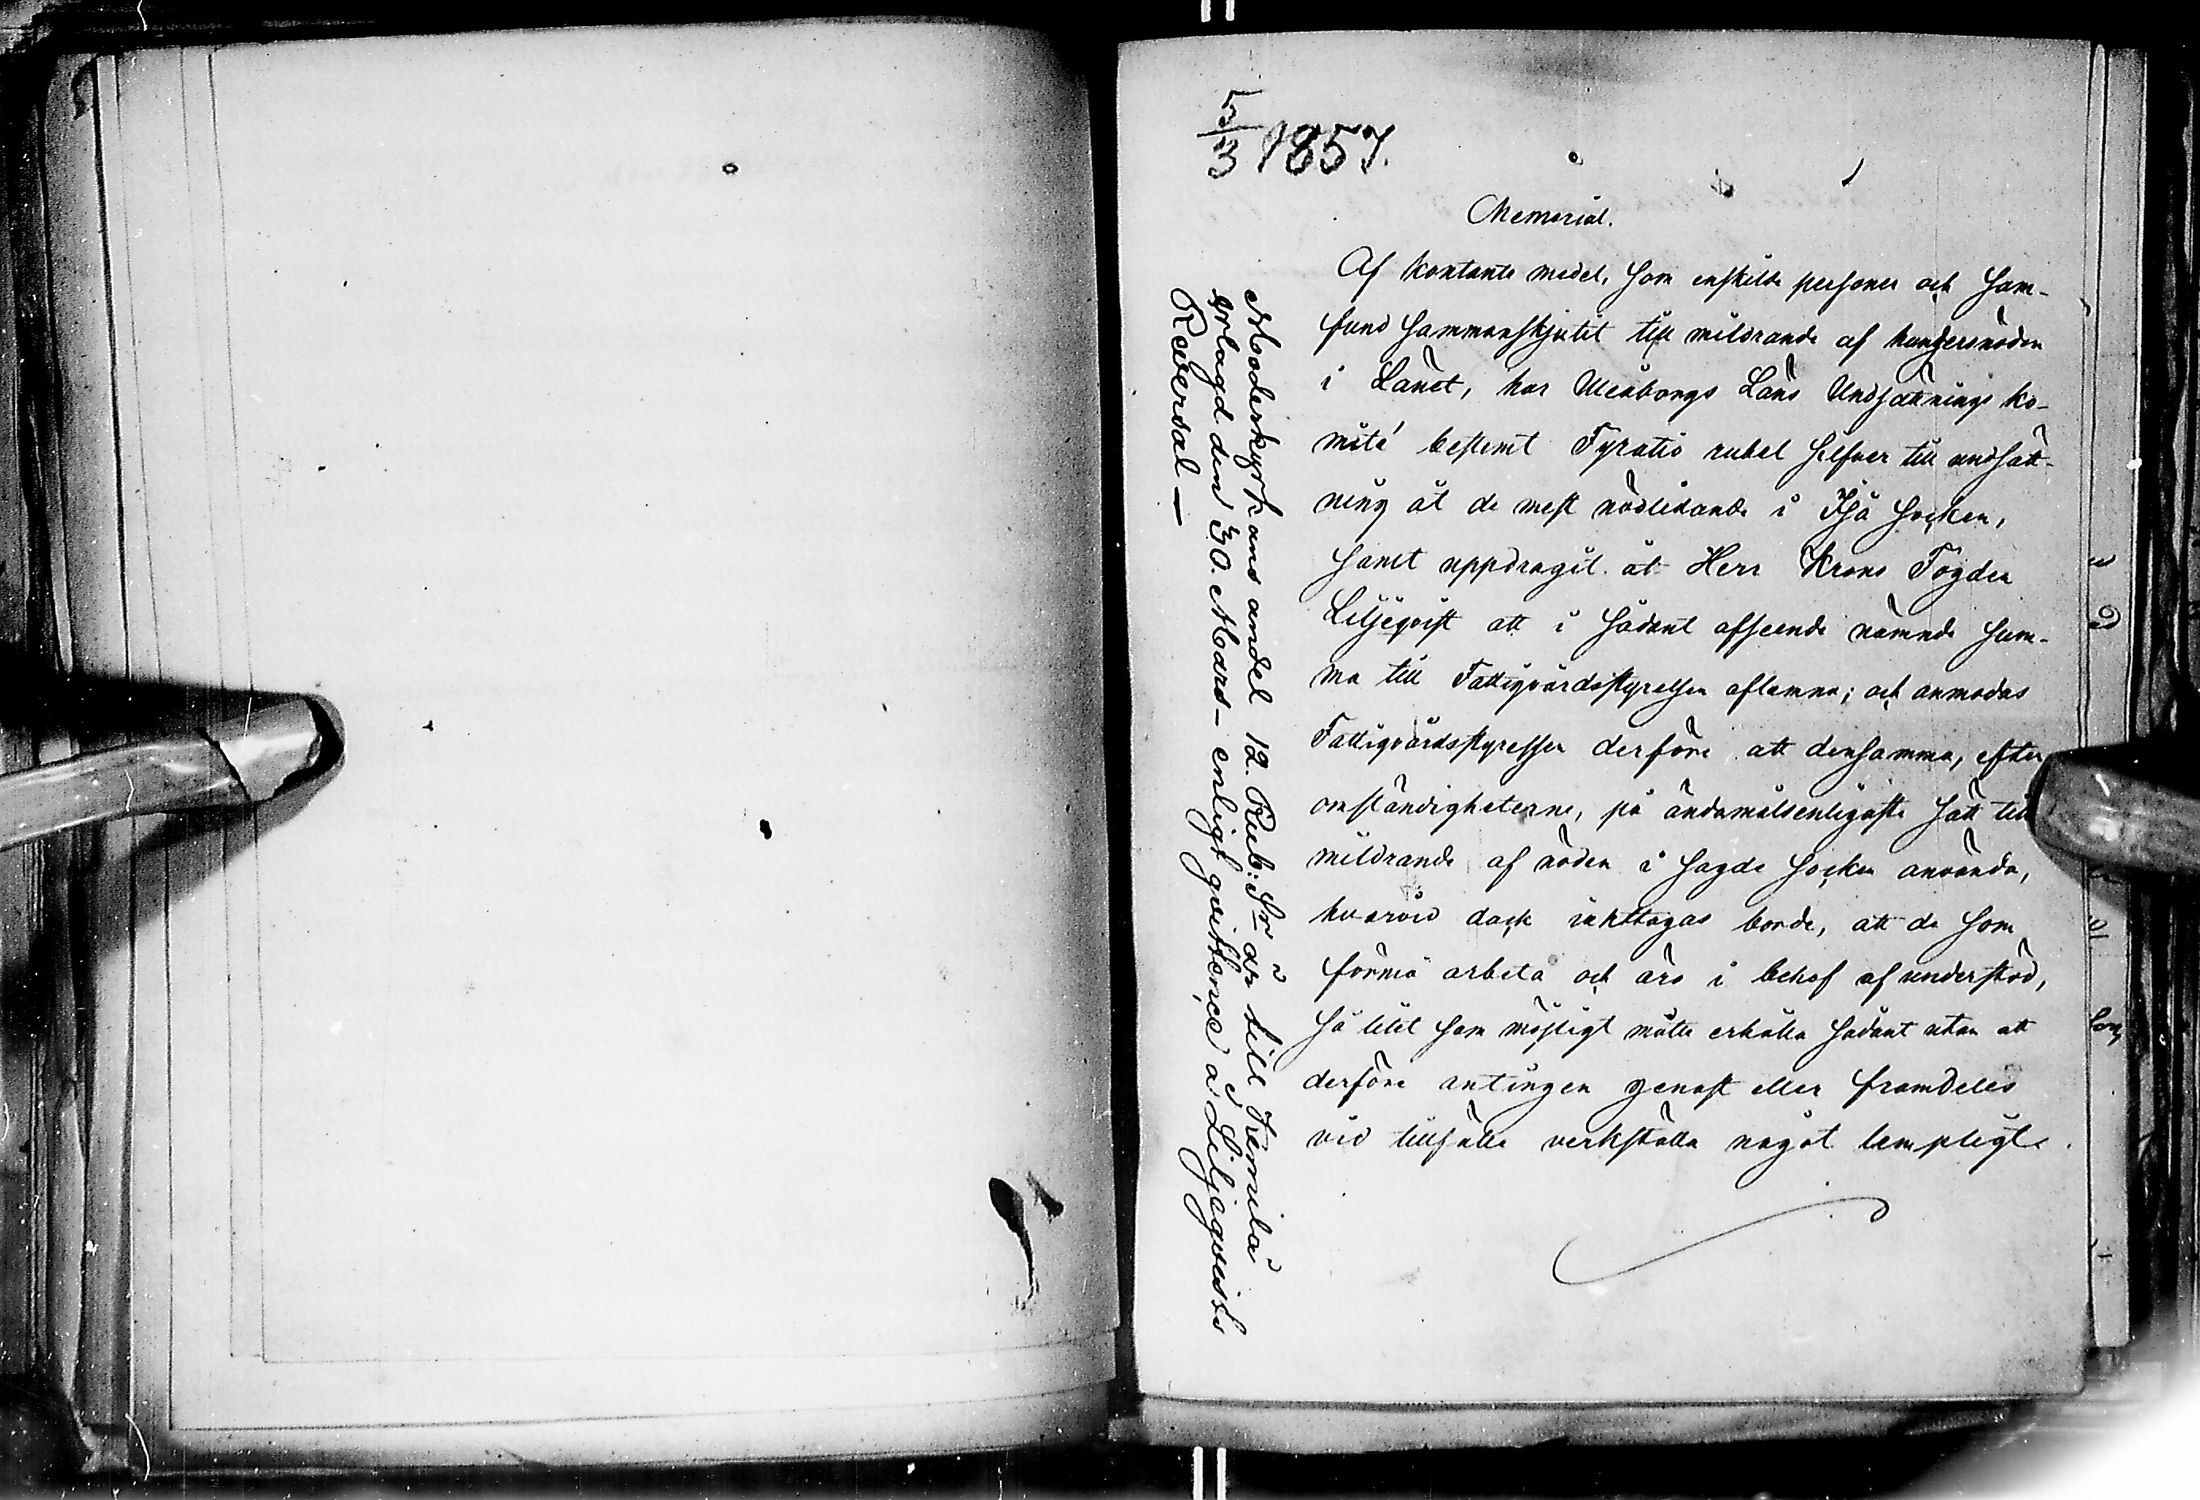 5/3 1857.
Memorial.
Af kontanta medel, som enskilda personer och sam-
fund sammanskjutit till mildrande af hungersnöden
i Länet, har Uleåborgs Läns Undsättnings ko-
mité bestemt Fyratio rubel silfver till undsätt-
ning åt de mest nödlidande i Ijå socken,
samt uppdragit åt Herr Krono Fogden
Liljeqvist att i sådant afseende nämnde sum-
ma till Fattigvårdsstyrelsen aflemna; och anmodas
Fattigvårdsstyrelsen derföre att densamma, efter
omständigheterna, på ändamålsenligaste sätt till
mildrande af nöden i sagde socken använda,
hvarvid dock iakttagas borde, att de som
förmå arbeta och äro i behof af understöd,
så litet som möjligt måtte erhålla sådant utan att
derföre antingen genast eller framdeles
vid tillfälle verkställa något lempligt
Moderkyrkans andel 12. Rub: Sr är till
erlagd den 30. Mars – enligt qvittence å Liljeqvists
Reversal —